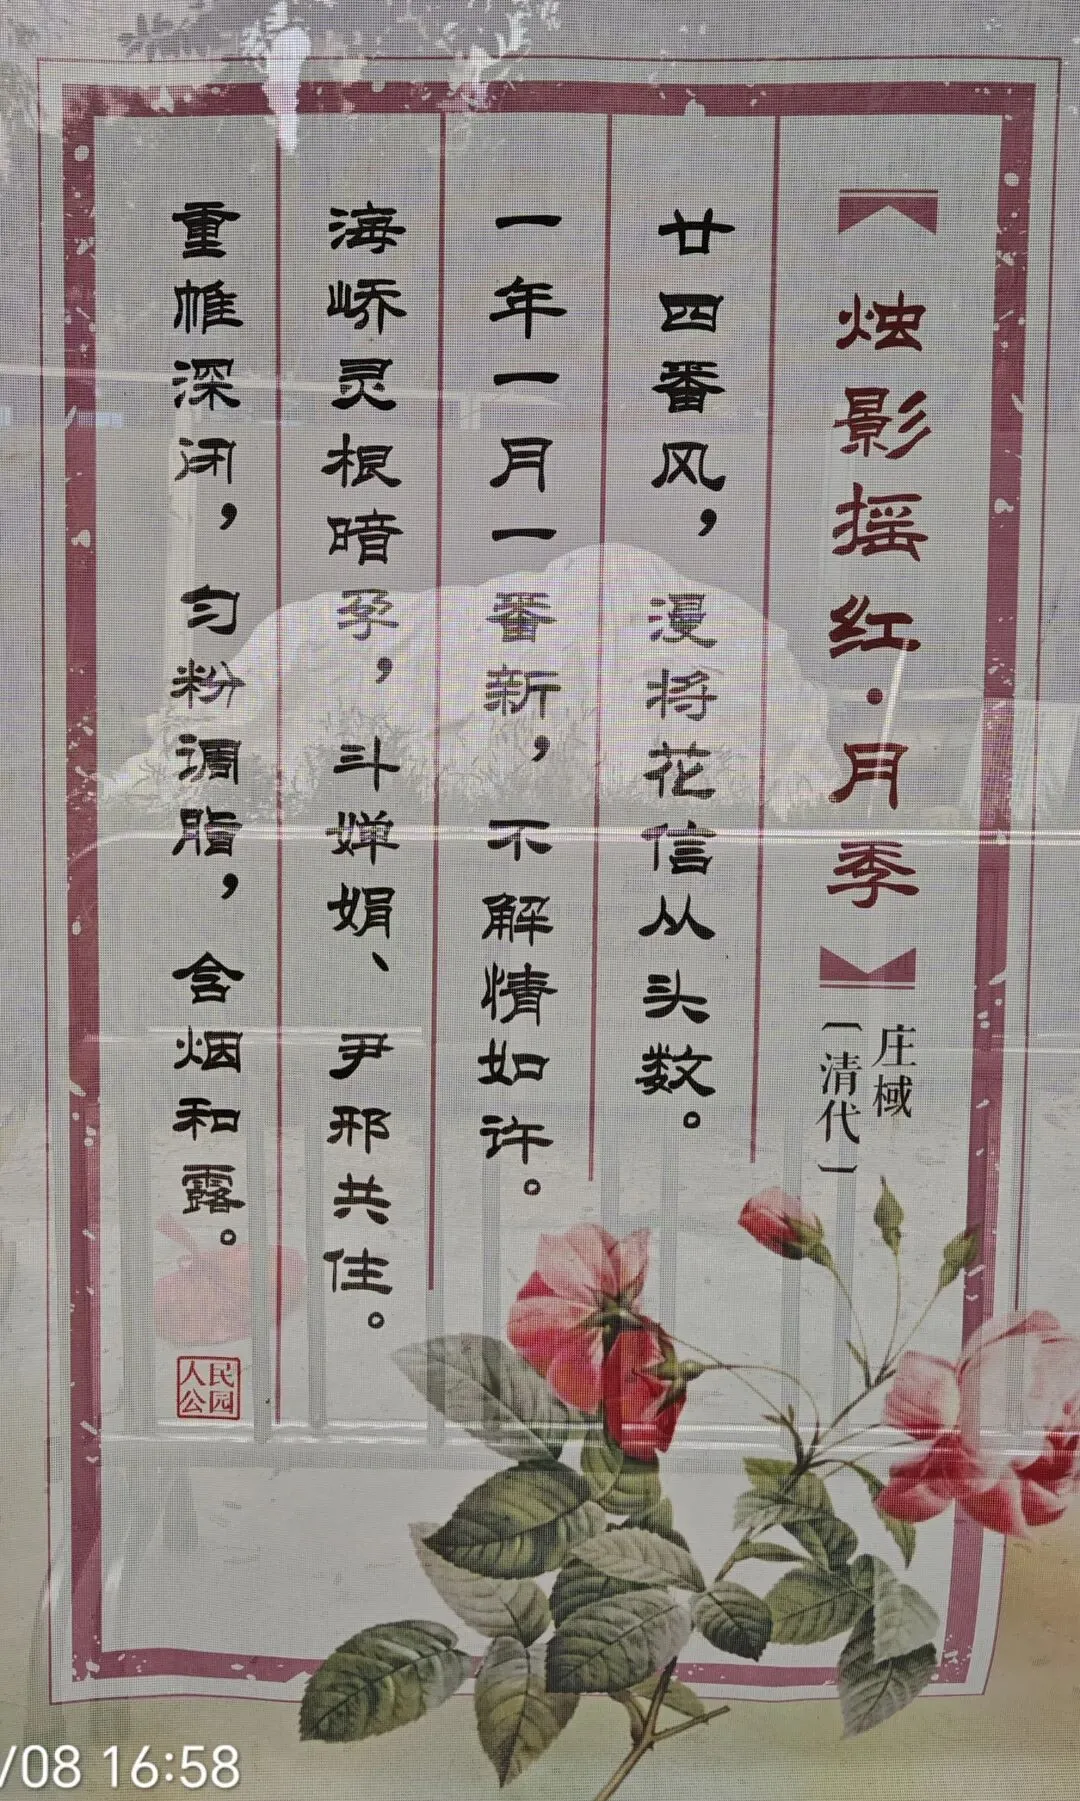 《烛影摇红·月季》
庄棫
〔清代〕
廿四番风，漫将花信从头数。
一年一月一番新，不解情如许。
海峤灵根暗孕，斗婵娟、尹邢共住。
重帷深闭，匀粉调脂，含烟和露。
人民
公园
/08 16:58